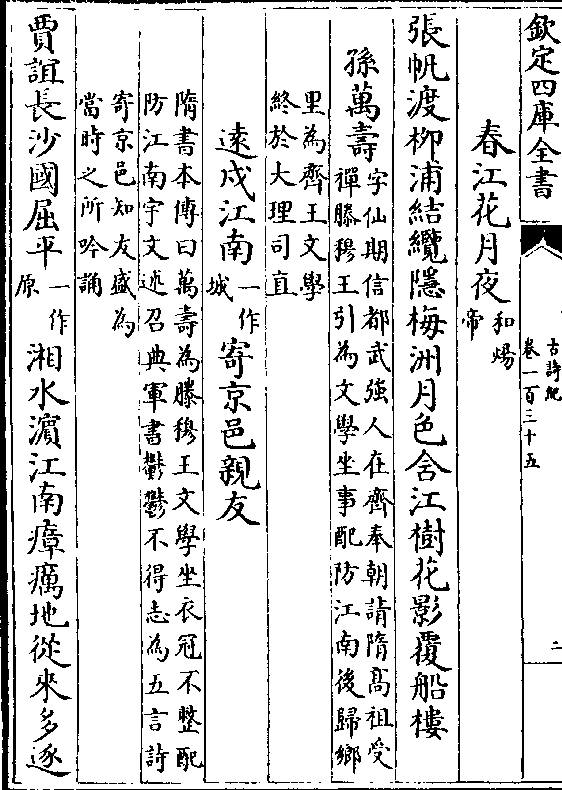 欽定四庫全書
古詩紀
卷一百三十五
二
春江花月夜和煬帝
張帆渡柳浦結纜隱梅洲月色含江樹花影覆船樓
孫萬壽字仙期信都武強人在齊奉朝請隋高祖受
禪滕穆王引為文學坐事配防江南後歸鄉
里為齊王文學
終於大理司直
遠戍江南一作城寄京邑親友
隋書本傳曰萬壽為滕穆王文學坐衣冠不整配
防江南宇文述召典軍書鬱鬱不得志為五言詩
寄京邑知友盛為
當時之所吟誦
賈誼長沙國屈平一作原湘水濵江南瘴癘地從來多逐